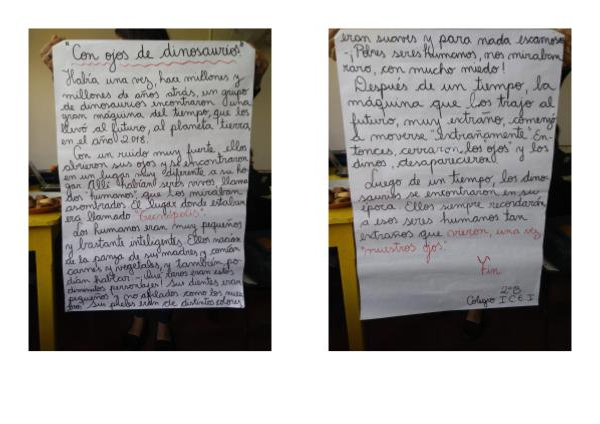 "Con ojos de dinosaurio"
Había una vez, hace millones y
millones de años atrás, un grupo
de dinosaurios encontraron una
gran máquina del tiempo, que los
llevó al futuro, al planeta tierra
en el año 2018.
Con un ruido muy fuerte, ellos
abrieron sus ojos y se encontraron
en un lugar muy diferente a su ho-
gar. Allí habían seres vivos, llama-
dos "humanos", que los miraban
asombrados. El lugar donde estaban
era llamado "Tecnópolis".
Los humanos eran muy pequeños
y bastante inteligentes. Ellos nacían
de la panza de sus madres y comían
carnes y vegetales, y también, po-
dían hablar. ¡Qué raros eran estos
diminutos personajes! Sus dientes eran
pequeños y no afilados como los nues-
tros. Sus pieles eran de distintos colores,
eran suaves y para nada escamosas
-¡Pobres seres humanos, nos miraban
raro, con mucho miedo!
Después de un tiempo, la
máquina que los trajo al
futuro, muy extraño, comenzó
a moverse "extrañamente". En-
tonces, cerraron "los ojos" y los
dinos, desaparecieron.
Luego de un tiempo, los dino-
saurios se encontraron en su
época. Ellos siempre recordarán
a esos seres humanos tan
extraños que vieron, una vez
"nuestros ojos".
Fin
2º B
Colegio I C E I